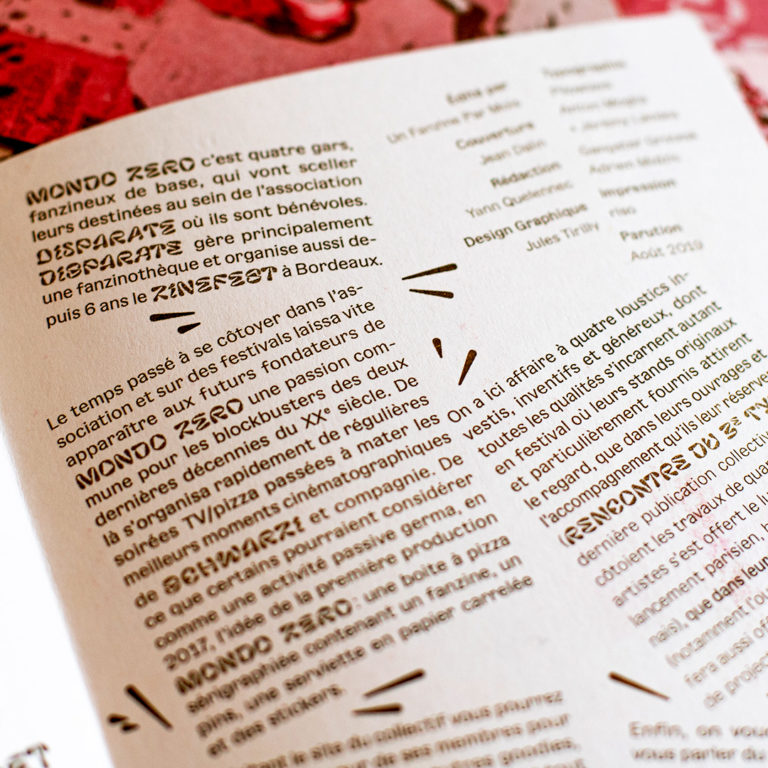 MONDO ZERO c'est quatre gars,
fanzineux de base, qui vont sceller
leurs destinées au sein de l'association
DISPARATE où ils sont bénévoles.
DISPARATE gère principalement
une fanzinothèque et organise aussi de-
puis 6 ans le ZINEFEST à Bordeaux.
Le temps passé à se côtoyer dans l'as-
sociation et sur des festivals laissa vite
apparaître aux futurs fondateurs de
MONDO ZERO une passion com-
mune pour les blockbusters des deux
dernières décennies du XXe siècle. De
là s'organisa rapidement de régulières
soirées TV/pizza passées à mater les
meilleurs moments cinématographiques
de SCHWARZI et compagnie. De
ce que certains pourraient considérer
comme une activité passive germa, en
2017, l'idée de la première production
MONDO ZERO: une boîte à pizza
sérigraphiée contenant un fanzine, un
pins, une serviette en papier carrelée
et des stickers.
le site du collectif vous pourrez
de ses membres pour
autres goodies.
Édité par
Un Fanzine Par Mois
Couverture
Jean Dalin
Rédaction
Yann Quellennec
Design Graphique
Jules Tirilly
Typographie
Impression
riso
Parution
Août 2019
On a ici affaire à quatre loustics in-
vestis, inventifs et généreux, dont
toutes les qualités s'incarnent autant
en festival où leurs stands originaux
et particulièrement fournis attirent
le regard, que dans leurs ouvrages et
l'accompagnement qu'ils leur réserve
(RENCONTRE DU 3e TY
dernière publication collectiv
côtoient les travaux de qua
artistes s'est offert le lu
lancement parisien,
nais), que dans leur
(notamment l'ou
fera aussi of
de projec
Enfin, on vou
vous parler du